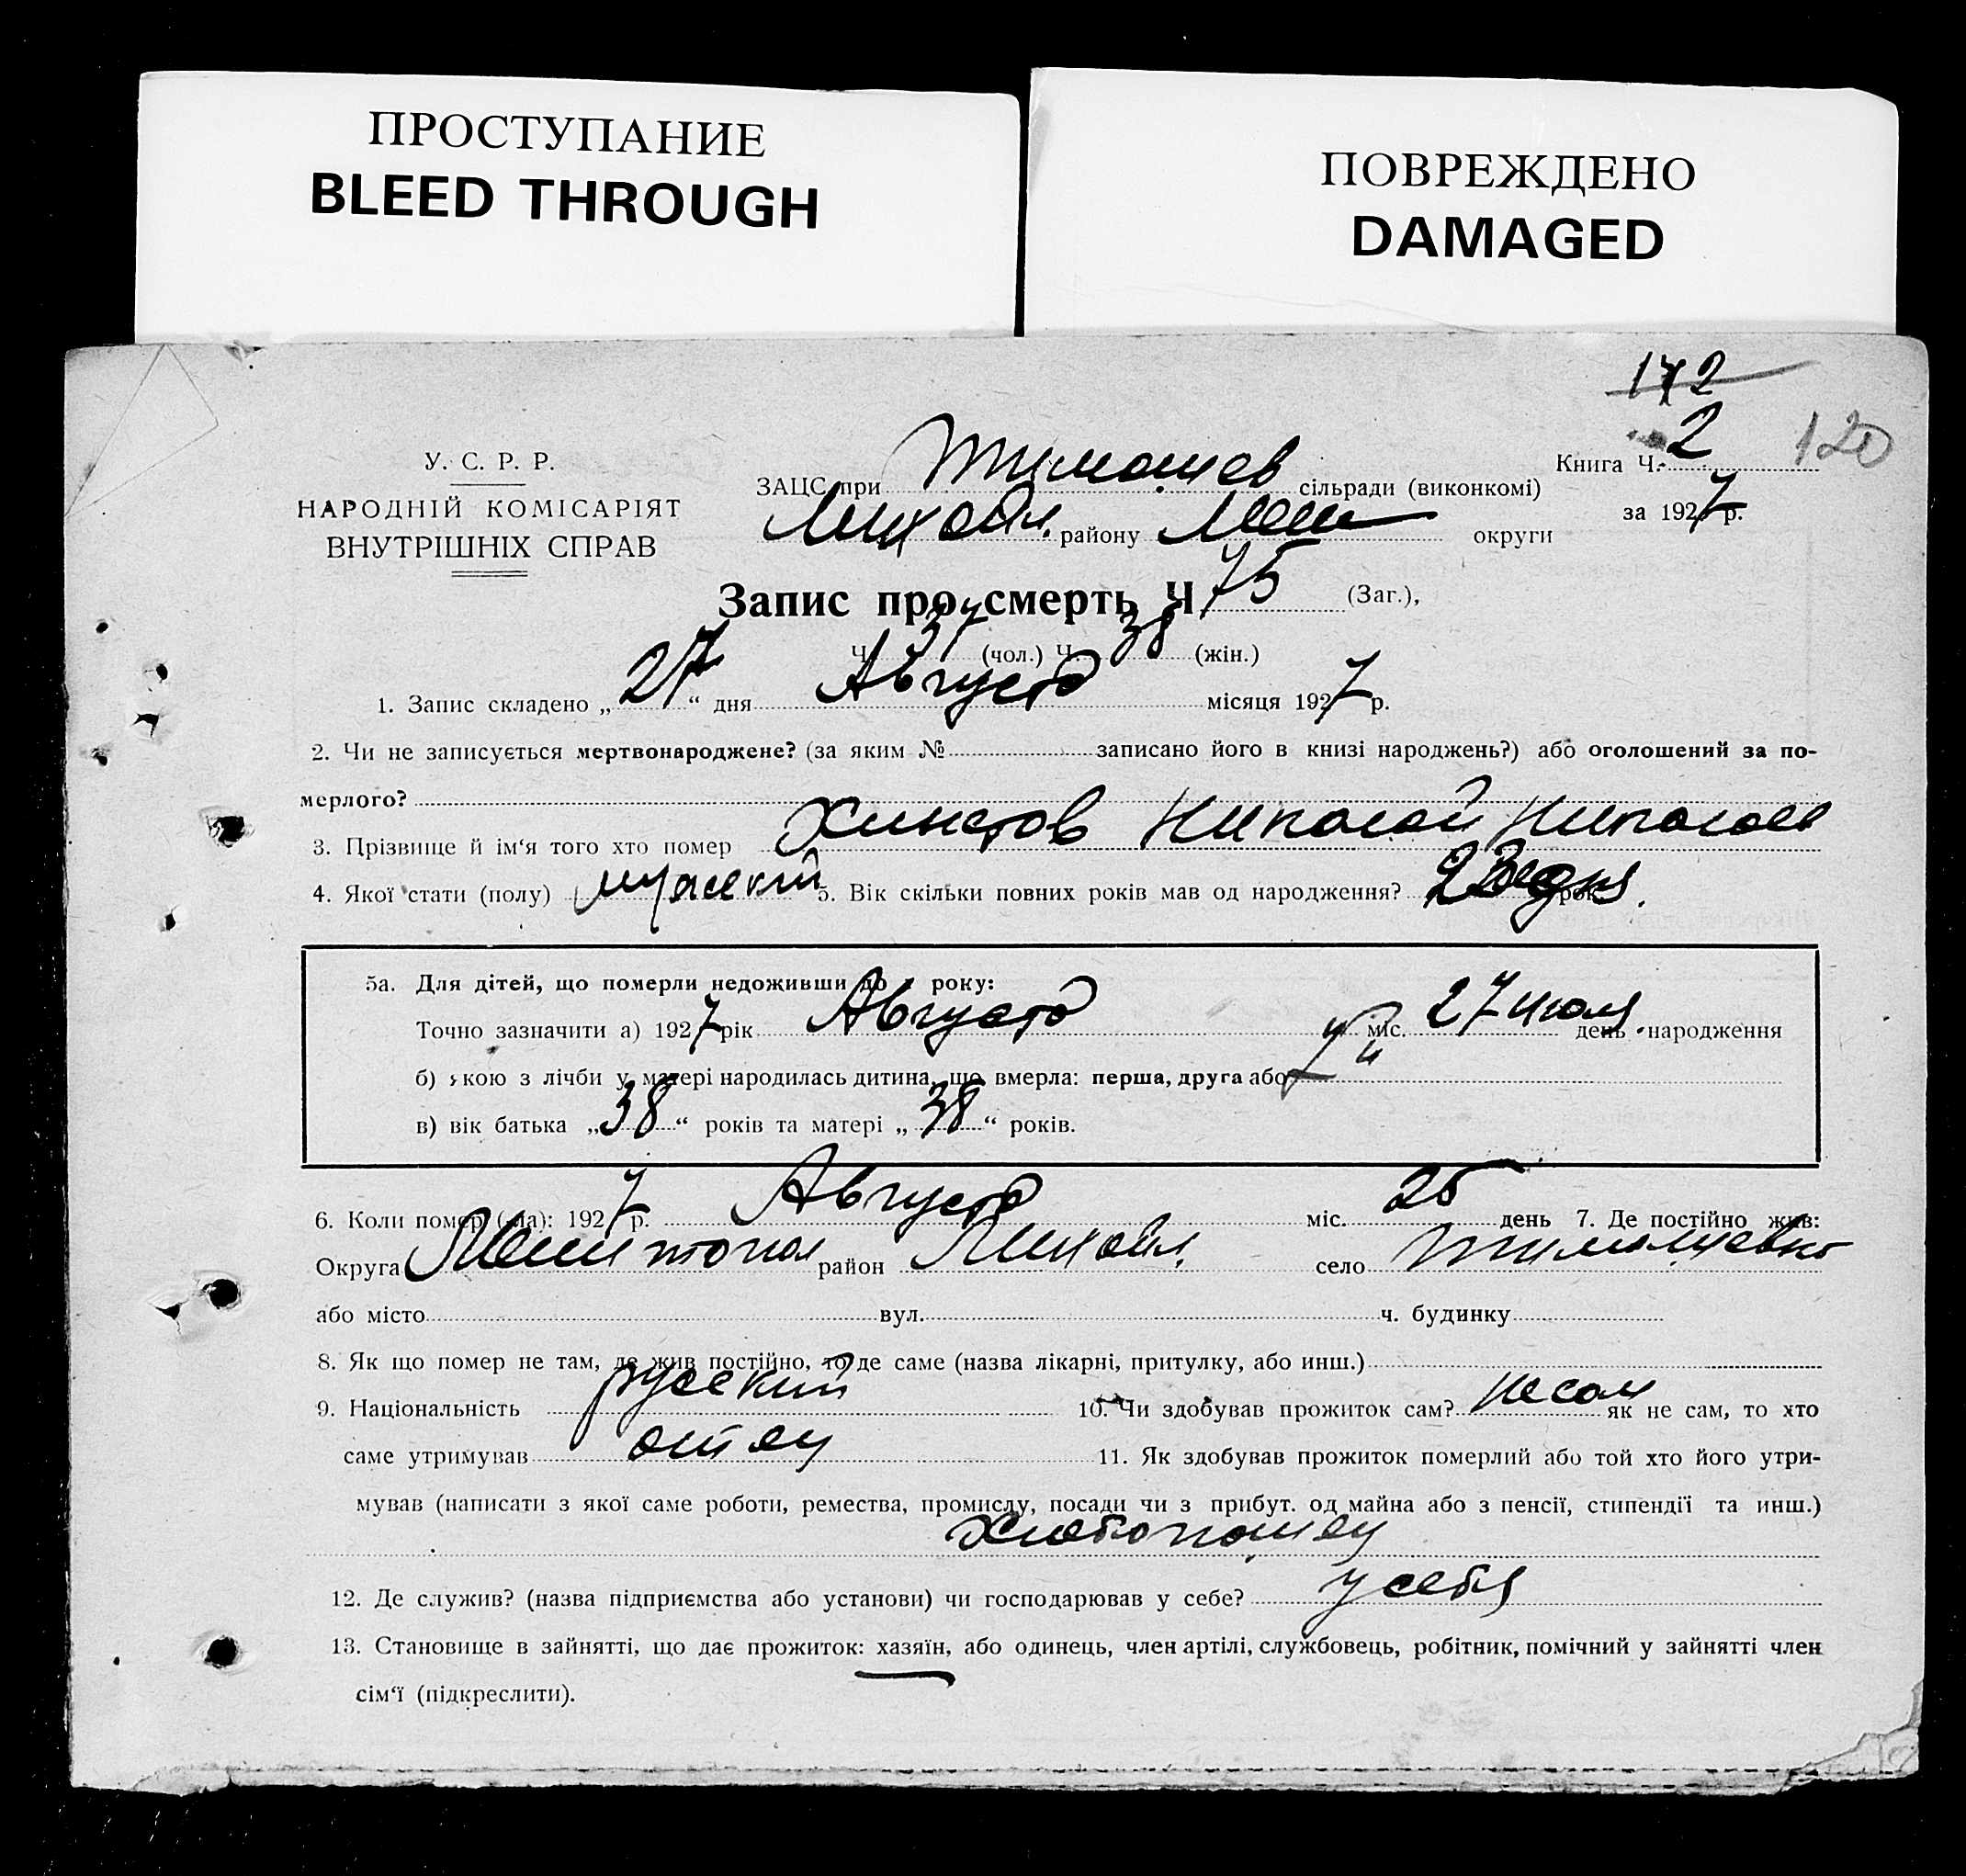 ПРОСТУПАНИЕ
BLEED THROUGH
ПОВРЕЖДЕНО
DAMAGED
172
120
У. С. Р. Р.
НАРОДНІЙ КОМІСАРІЯТ
ВНУТРІШНІХ СПРАВ
ЗАЦС при Тимошев сільради (виконкомі)
Михайл. району Мели округи
Книга Ч. 2
за 1927 р.
Запис про смерть Ч 75 (Заг.),
Ч. 37 (чол.) Ч. 38 (жін.)
1. Запис складено „27“ дня Августа місяця 1927 р.
2. Чи не записується мертвонароджене? (за яким № записано його в книзі народжень?) або оголошений за по-
мерлого?
3. Прізвище й ім‘я того хто помер Николай Николаев
4. Якої стати (полу) мужский 5. Вік скільки повних років мав од народження?
5а. Для дітей, що померли недоживши до року:
Точно зазначити а) 1927 рік Августа міс. 27 июля день народження
б) якою з лічби у матері народилась дитина, що вмерла: перша, друга або
в) вік батька „38“ років та матері „38“ років.
6. Коли помер (ла): 1927 р. Августа міс. 25 день 7. Де постійно жив:
Округа Мелитопол район Михайл. село Тимошевка
або місто вул. ч. будинку
8. Як що помер не там, де жив постійно, то де саме (назва лікарні, притулку, або инш.)
9. Національність русский 10. Чи здобував прожиток сам? не сам як не сам, то хто
саме утримував отец 11. Як здобував прожиток померлий або той хто його утри-
мував (написати з якої саме роботи, ремества, промислу, посади чи з прибут. од майна або з пенсії, стипендії та инш.)
Хлебопашец
12. Де служив? (назва підприємства або установи) чи господарював у себе? у себя
13. Становище в зайнятті, що дає прожиток: хазяїн, або одинець, член артілі, службовець, робітник, помічний у зайнятті член
сім‘ї (підкреслити).